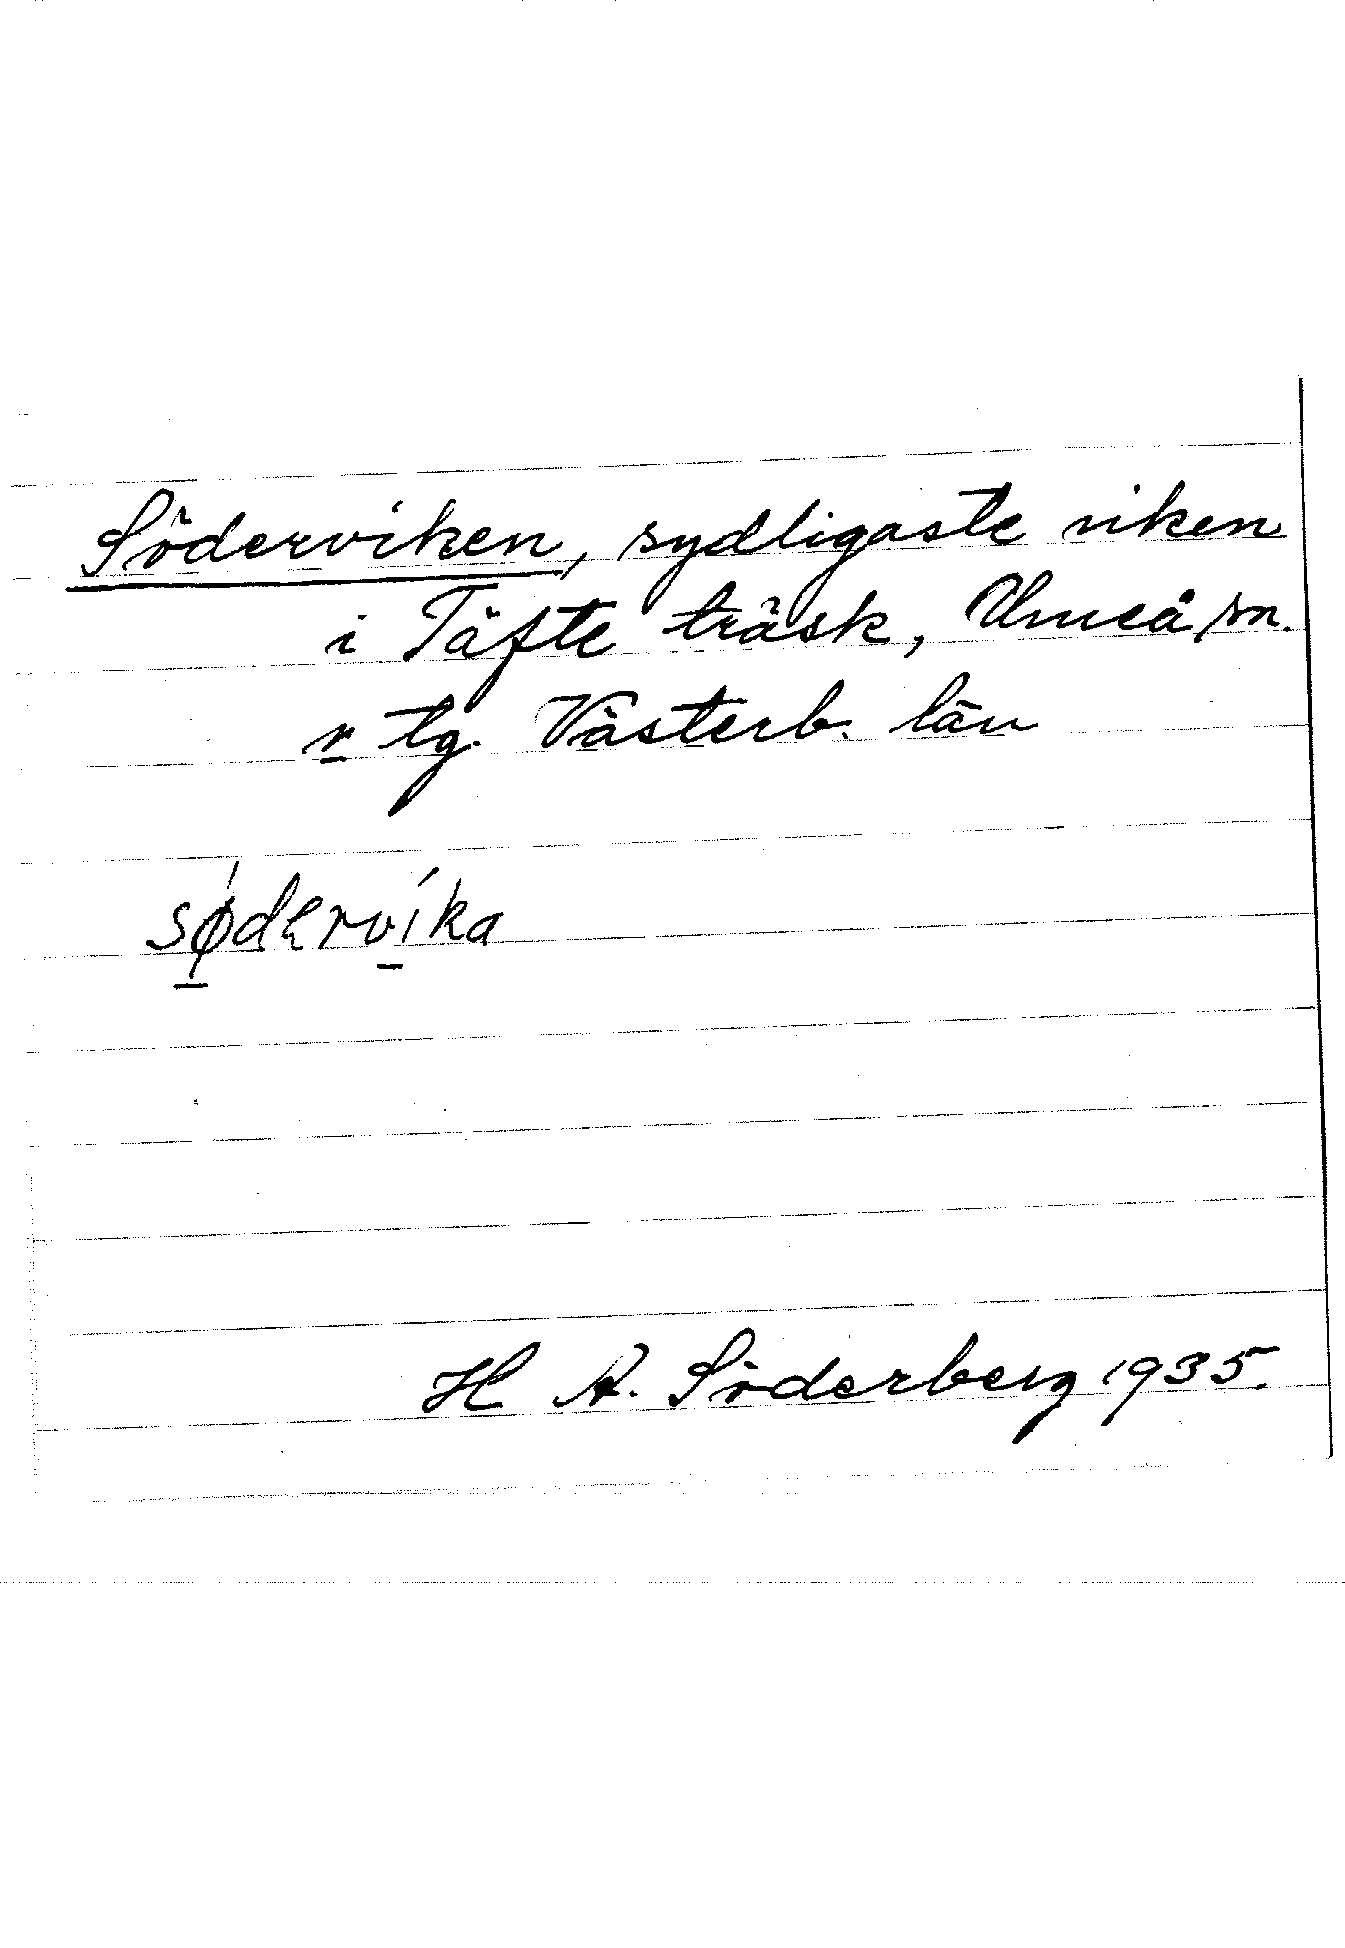 Söderviken, sydligaste viken
i Täfte träsk, Umeå sn.
o tg. Västerb. län
södervika
H A. Söderberg 1935.